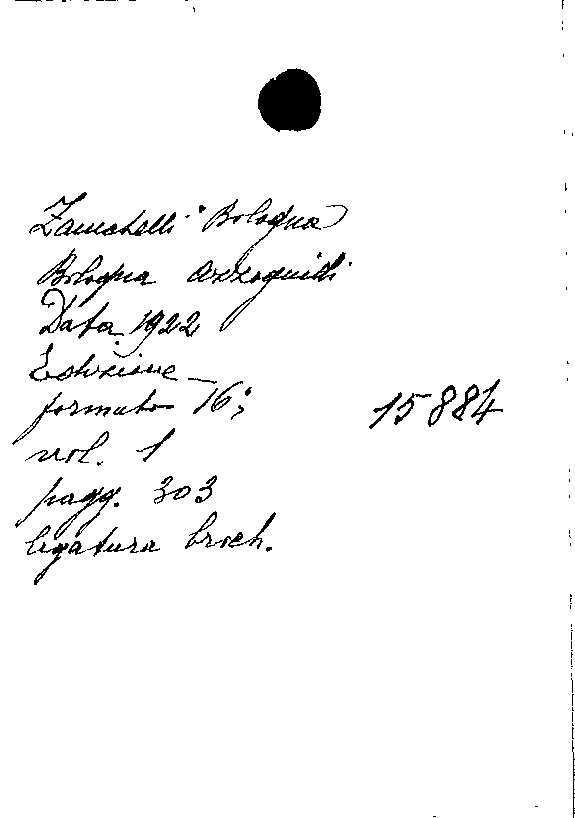 Zanichelli - Bologna
Bologna Azzoguidi
Data 1922
Edizione —
formato 16°; 15884
vol. 1
pagg. 303
legatura broch.